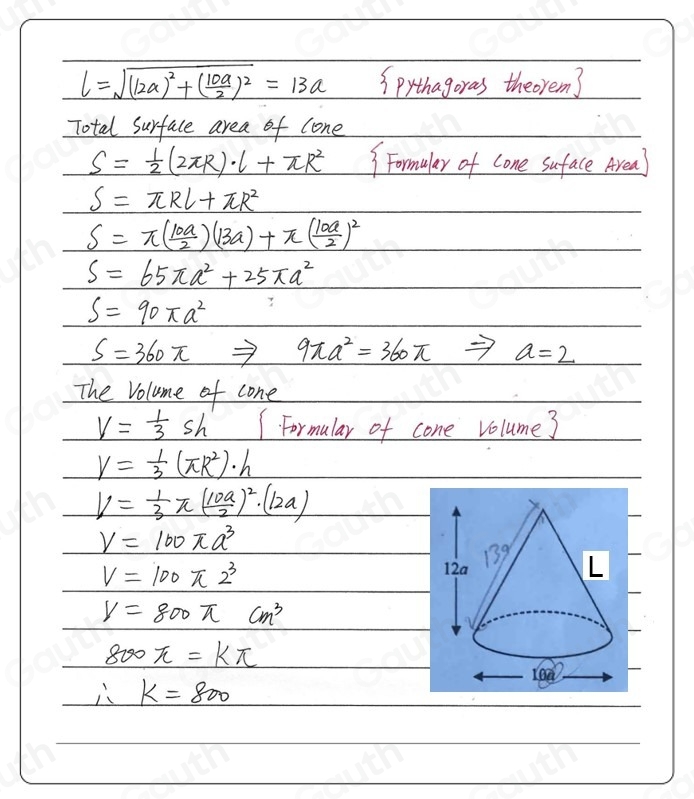 l = √((12a)² + (10a/2)²) = 13a {Pythagoras theorem}
Total Surface area of Cone
S = 1/2 (2πR)·l + πR² {Formular of Cone Suface Area}
S = πRl + πR²
S = π(10a/2)(13a) + π(10a/2)²
S = 65πa² + 25πa²
S = 90πa²
S = 360π ⇒ 9πa² = 360π ⇒ a = 2
The Volume of cone
V = 1/3 sh {Formular of cone Volume}
V = 1/3 (πR²)·h
V = 1/3 π (10a/2)²·(12a)
V = 100πa³
V = 100π 2³
V = 800π cm³
800π = Kπ
∴ K = 800
12a
13a
L
10a
Gauth